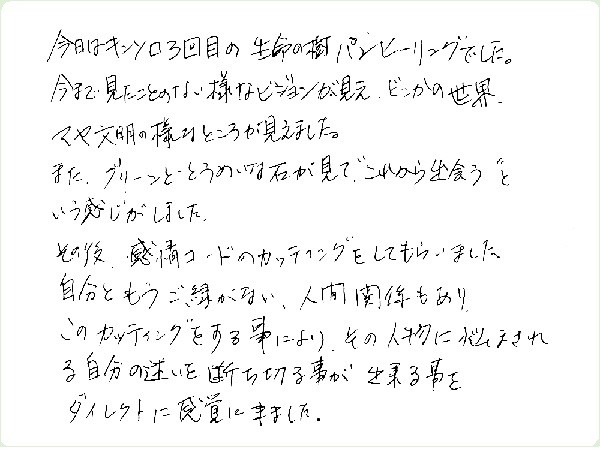 今日はキンソロ3回目の生命の樹パンヒーリングでした。
今まで見たことのない様なビジョンが見え、どこかの世界、
マヤ文明の様なところが見えました。
また、グリーンと、とうめいな石が見て、"これから出会う"と
いう感じがしました。
その後、感情コードのカッティングをしてもらいました
自分ともうご縁がない、人間関係もあり
このカッティングをする事により、その人物に悩まされ
る自分の迷いを断ち切る事が出来る事を
ダイレクトに感覚にきました.